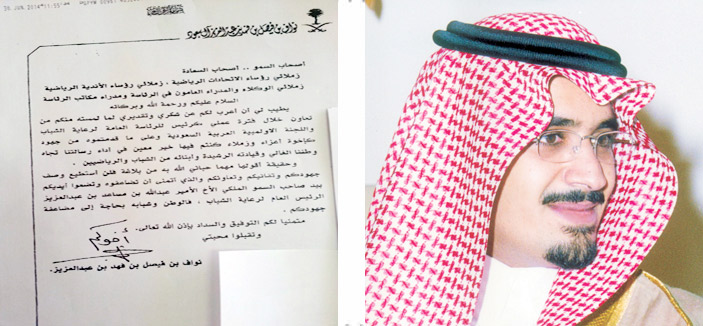 نواف بن فيصل بن فهد بن عبدالعزيز آل سعود
أصحاب السمو .. أصحاب السعادة
زملائي رؤساء الاتحادات الرياضية ، زملائي رؤساء الأندية الرياضية
زملائي الوكلاء والمدراء العامون في الرئاسة ومدراء مكاتب الرئاسة
السلام عليكم ورحمة الله وبركاته
يطيب لي أن أعرب لكم عن شكري وتقديري لما لمسته منكم من
تعاون خلال فترة عملي كرئيس للرئاسة العامة لرعاية الشباب
واللجنة الأولمبية العربية السعودية وعلى ما قدمتموه من جهود
كإخوة أعزاء وزملاء كنتم فيها خير معين في أداء رسالتنا تجاه
وطننا الغالي وقيادته الرشيدة وأبنائه من الشباب والرياضيين
وحقيقة أقولها مهما حباني الله به من بلاغة فلن أستطيع وصف
جهودكم وتفانيكم وتعاونكم والذي أتمنى أن تضاعفوه وتضعوا أيديكم
بيد صاحب السمو الملكي الأخ الأمير عبدالله بن مساعد بن عبدالعزيز
الرئيس العام لرعاية الشباب ، فالوطن وشبابه بحاجة إلى مضاعفة
جهودكم .
متمنيا لكم التوفيق والسداد بإذن الله تعالى .
وتقبلوا محبتي
أخوكم
نواف بن فيصل بن فهد بن عبدالعزيز.